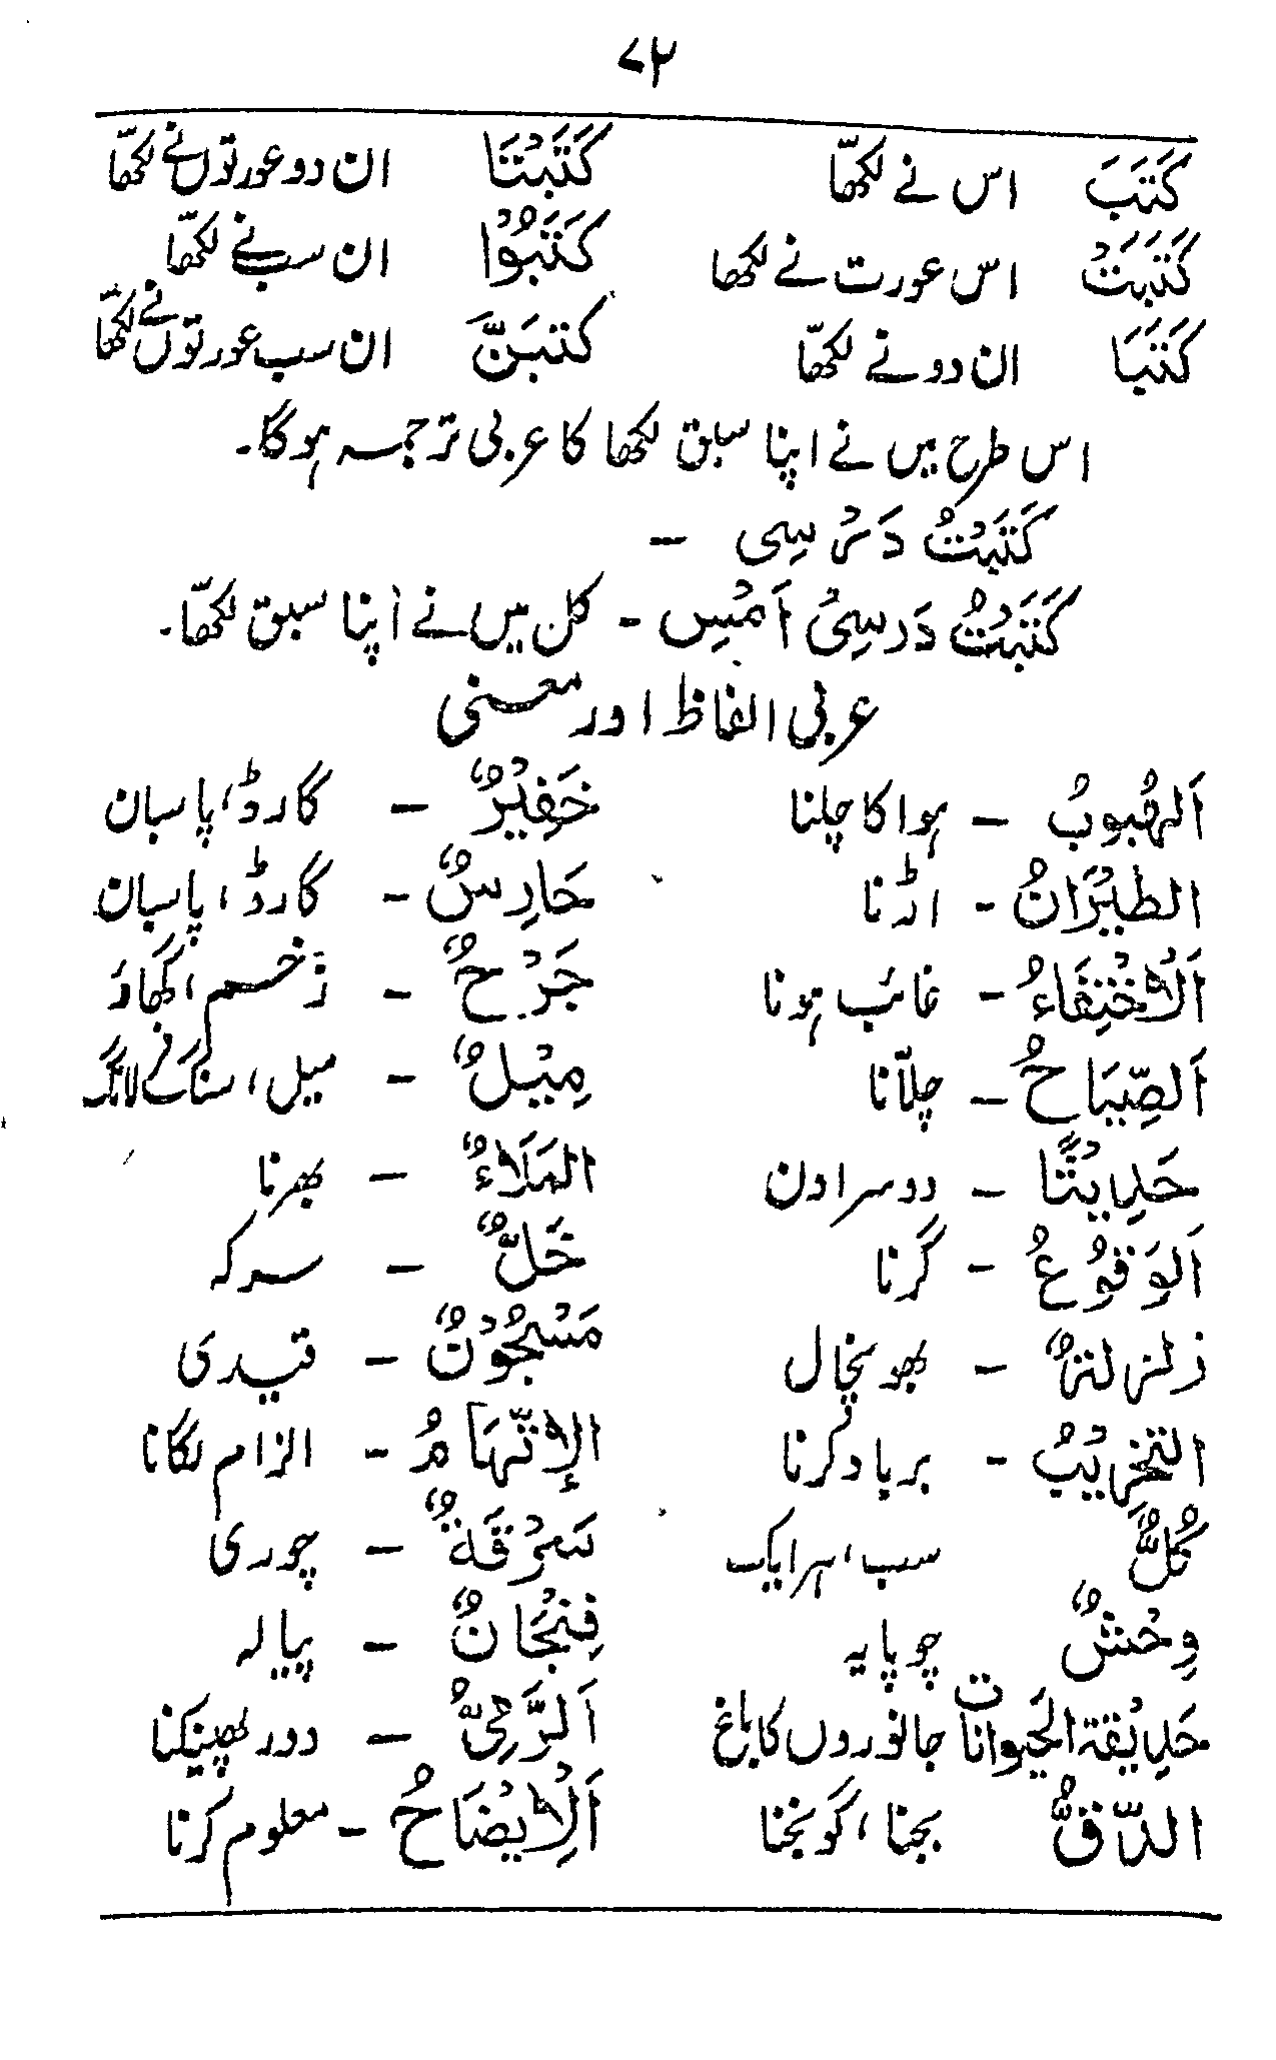 ۷۲
كَتَبَ اس نے لکھّا كَتَبْتَا ان دو عورتوں نے لکھّا
كَتَبَتْ اس عورت نے لکھا كَتَبُوْا ان سب نے لکھّا
كَتَبَا ان دو نے لکھّا كتبَنَّ ان سب عورتوں نے لکھّا
اس طرح میں نے اپنا سبق لکھا کا عربی ترجمہ ہوگا۔
كَتَبْتُ دَرْسِی –
كَتَبْتُ دَرسِیْ اَمْسِ – کل میں نے اپنا سبق لکھّا۔
عربی الفاظ اور معنی
اَلہُبوبُ – ہوا کا چلنا خَفِيْرٌ – گارڈ، پاسبان
الطيْرَانُ – اڑنا حَارِسٌ – گارڈ، پاسبان
اَلْاخْتِفَاءُ – غائب ہونا جَرْحٌ – زخم، گھاؤ
اَلصِّيَاحُ – چلّانا مِيْلٌ – میل، سنگ فرلانگ
حَدِيْثًا – دوسرا دن المَلَاءُ – بھرنا
اَلوَقوُعُ – گرنا خَلٌّ – سرکہ
زلزلةٌ – بھونچال مَسْجُوْنٌ – قیدی
التخرِيْبُ – برباد کرنا الإتّهَامُ – الزام لگانا
كُلٌّ سب، ہر ایک سَرْقَةٌ – چوری
وِحْشٌ چوپایہ فِنْجَانٌ – پیالہ
حَدِيْقة الحَيوانات جانوروں کا باغ اَلرَّمِیُّ – دور پھینکنا
الدّقُّ بجنا، گونجنا اَلْاِيْضَاحُ – معلوم کرنا